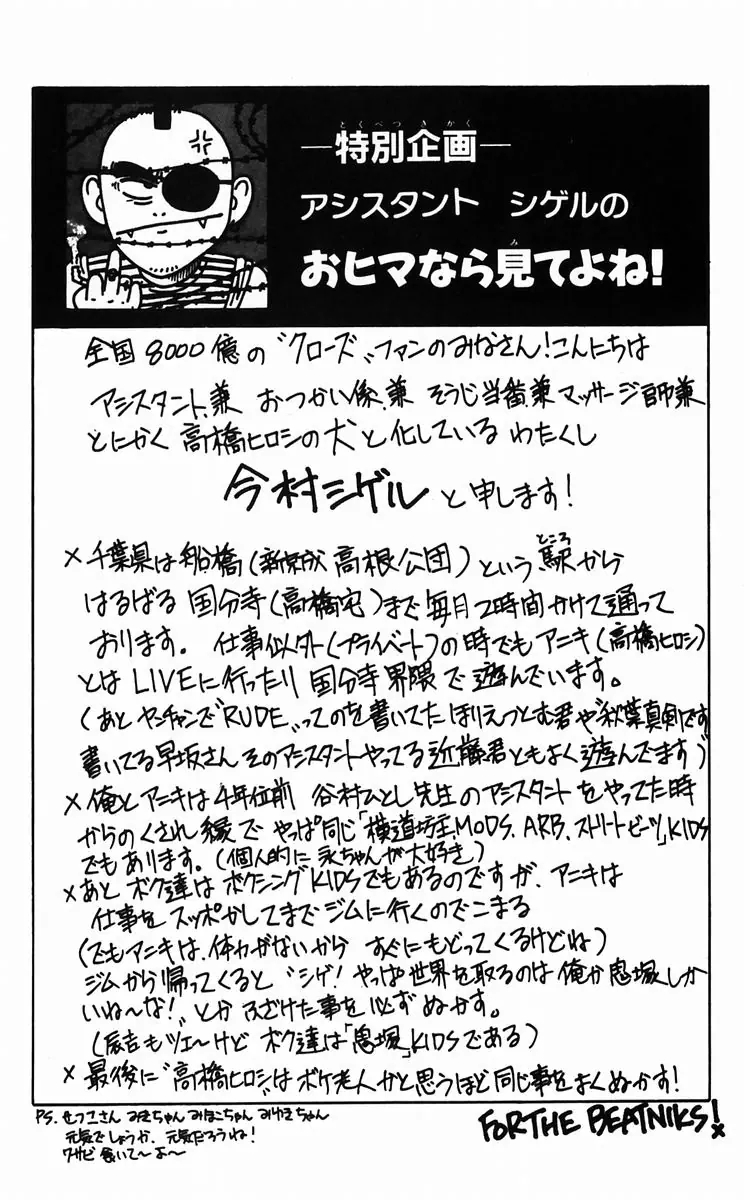 とくべつきかく
―特別企画―
アシスタント シゲルの
み
おヒマなら見てよね!
全国8000億の〝クローズ〟ファンのみなさん!こんにちは
アシスタント.兼 おつかい係.兼 そうじ当番.兼マッサージ師兼
とにかく 高橋ヒロシの犬と化している わたくし
今村シゲル と申します!
ところ
×千葉県は船橋(新京成 高根公団)という駅から
はるばる 国分寺(高橋宅)まで毎月2時間かけて通って
おります。 仕事以外(プライベート)の時でもアニキ(高橋ヒロシ)
とは LIVEに行ったり 国分寺界隈で遊んでいます。
(あと ヤンチャンで〝RUDE〟ってのを書いてた ほりえつとむ君や〝秋葉真剣です〟
書いてる早坂さん そのアシスタントやってる近藤君ともよく遊んでます)
×俺とアニキは4年位前 谷村ひとし先生のアシスタントをやってた時
からのくされ縁で やっぱ同じ「横道坊主.MODS.ARB.ストリートビーツ」KIDS
でもあります。(個人的に永ちゃんが大好き)
×あと ボク達はボクシングKIDSでもあるのですが、アニキは
仕事をスッポかしてまでジムに行くのでこまる
(でもアニキは、体力がないから すぐにもどってくるけどね)
ジムから帰ってくると 〝シゲ!やっぱ世界を取るのは俺か鬼塚しか
いね〜な!〟とか ふざけた事を必ずぬかす。
(辰吉もツエ〜けど ボク達は「鬼塚」KIDSである)
×最後に〝高橋ヒロシ〟はボケ老人かと思うほど同じ事をよくぬかす!
PS.せつこさん みきちゃん みほこちゃん みゆきちゃん
元気でしょうか。元気だろうね!
ワサビ食いて〜よ〜
FOR THE BEATNIKS!